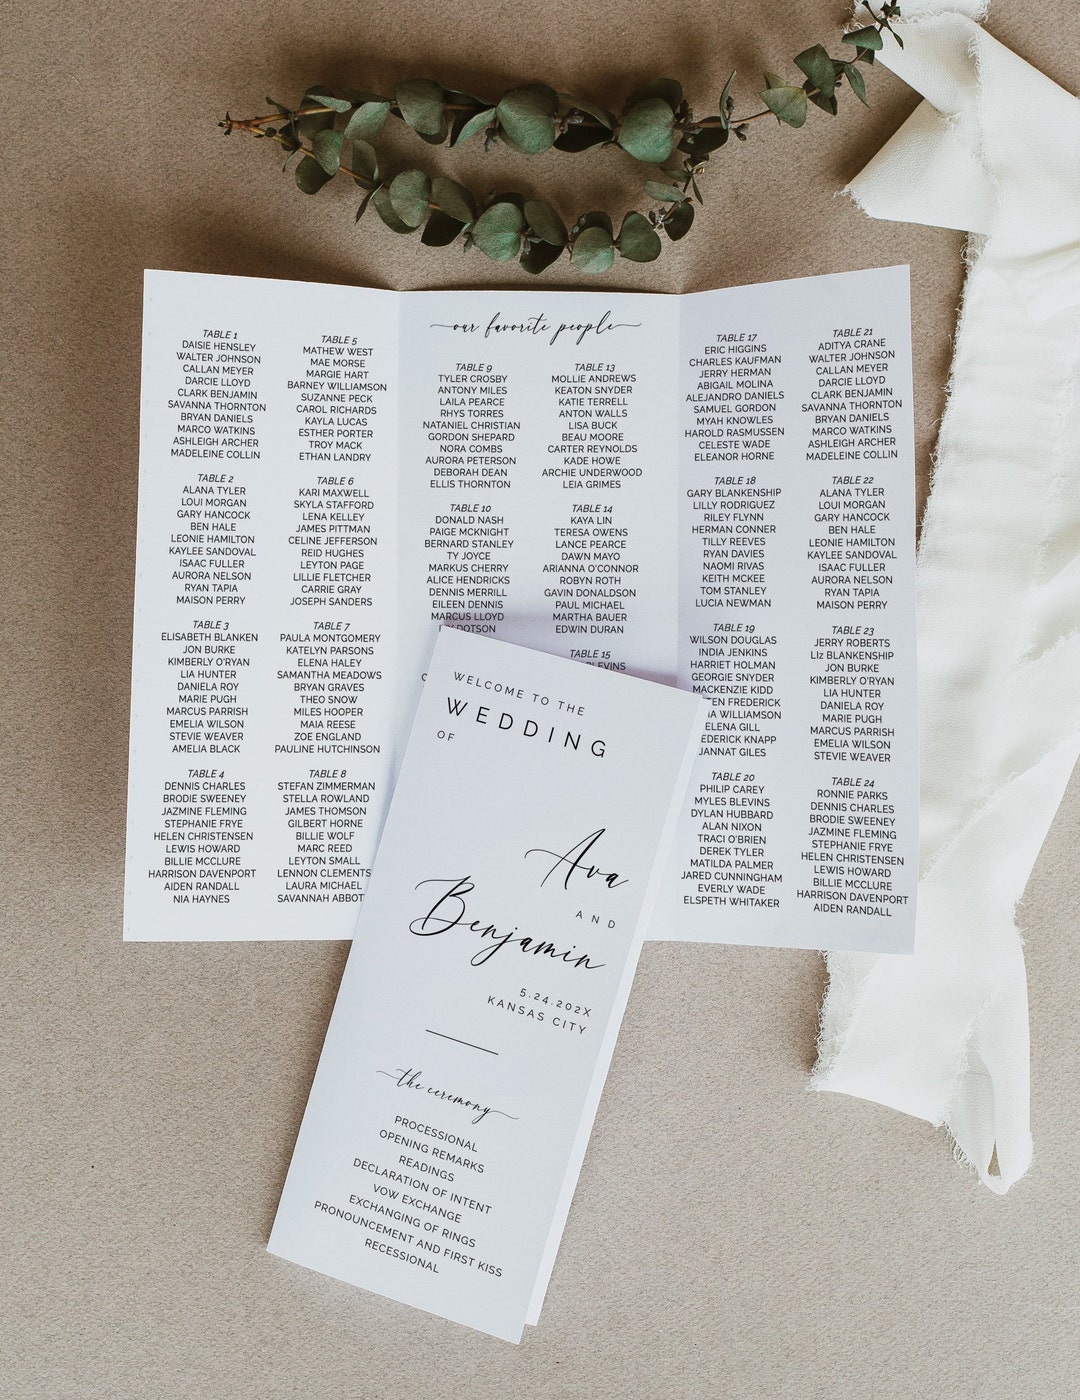 our favorite people
TABLE 1
DAISIE HENSLEY
WALTER JOHNSON
CALLAN MEYER
DARCIE LLOYD
CLARK BENJAMIN
SAVANNA THORNTON
BRYAN DANIELS
MARCO WATKINS
ASHLEIGH ARCHER
MADELEINE COLLIN
TABLE 2
ALANA TYLER
LOUI MORGAN
GARY HANCOCK
BEN HALE
LEONIE HAMILTON
KAYLEE SANDOVAL
ISAAC FULLER
AURORA NELSON
RYAN TAPIA
MAISON PERRY
TABLE 3
ELISABETH BLANKEN
JON BURKE
KIMBERLY O'RYAN
LIA HUNTER
DANIELA ROY
MARIE PUGH
MARCUS PARRISH
EMELIA WILSON
STEVIE WEAVER
AMELIA BLACK
TABLE 4
DENNIS CHARLES
BRODIE SWEENEY
JAZMINE FLEMING
STEPHANIE FRYE
HELEN CHRISTENSEN
LEWIS HOWARD
BILLIE MCCLURE
HARRISON DAVENPORT
AIDEN RANDALL
NIA HAYNES
TABLE 5
MATHEW WEST
MAE MORSE
MARGIE HART
BARNEY WILLIAMSON
SUZANNE PECK
CAROL RICHARDS
KAYLA LUCAS
ESTHER PORTER
TROY MACK
ETHAN LANDRY
TABLE 6
KARI MAXWELL
SKYLA STAFFORD
LENA KELLEY
JAMES PITTMAN
CELINE JEFFERSON
REID HUGHES
LEYTON PAGE
LILLIE FLETCHER
CARRIE GRAY
JOSEPH SANDERS
TABLE 7
PAULA MONTGOMERY
KATELYN PARSONS
ELENA HALEY
SAMANTHA MEADOWS
BRYAN GRAVES
THEO SNOW
MILES HOOPER
MAIA REESE
ZOE ENGLAND
PAULINE HUTCHINSON
TABLE 8
STEFAN ZIMMERMAN
STELLA ROWLAND
JAMES THOMSON
GILBERT HORNE
BILLIE WOLF
MARC REED
LEYTON SMALL
LENNON CLEMENTS
LAURA MICHAEL
SAVANNAH ABBOT
TABLE 9
TYLER CROSBY
ANTONY MILES
LAILA PEARCE
RHYS TORRES
NATANIEL CHRISTIAN
GORDON SHEPARD
NORA COMBS
AURORA PETERSON
DEBORAH DEAN
ELLIS THORNTON
TABLE 10
DONALD NASH
PAIGE MCKNIGHT
BERNARD STANLEY
TY JOYCE
MARKUS CHERRY
ALICE HENDRICKS
DENNIS MERRILL
EILEEN DENNIS
MARCUS LLOYD
DOTSON
TABLE 13
MOLLIE ANDREWS
KEATON SNYDER
KATIE TERRELL
ANTON WALLS
LISA BUCK
BEAU MOORE
CARTER REYNOLDS
KADE HOWE
ARCHIE UNDERWOOD
LEIA GRIMES
TABLE 14
KAYA LIN
TERESA OWENS
LANCE PEARCE
DAWN MAYO
ARIANNA O'CONNOR
ROBYN ROTH
GAVIN DONALDSON
PAUL MICHAEL
MARTHA BAUER
EDWIN DURAN
TABLE 15
BLEVINS
TABLE 17
ERIC HIGGINS
CHARLES KAUFMAN
JERRY HERMAN
ABIGAIL MOLINA
ALEJANDRO DANIELS
SAMUEL GORDON
MYAH KNOWLES
HAROLD RASMUSSEN
CELESTE WADE
ELEANOR HORNE
TABLE 18
GARY BLANKENSHIP
LILLY RODRIGUEZ
RILEY FLYNN
HERMAN CONNER
TILLY REEVES
RYAN DAVIES
NAOMI RIVAS
KEITH MCKEE
TOM STANLEY
LUCIA NEWMAN
TABLE 19
WILSON DOUGLAS
INDIA JENKINS
HARRIET HOLMAN
GEORGIE SNYDER
MACKENZIE KIDD
FREDERICK
WILLIAMSON
ELENA GILL
KNAPP
GILES
TABLE 20
PHILIP CAREY
MYLES BLEVINS
DYLAN HUBBARD
ALAN NIXON
TRACI O'BRIEN
DEREK TYLER
MATILDA PALMER
JARED CUNNINGHAM
EVERLY WADE
ELSPETH WHITAKER
TABLE 21
ADITYA CRANE
WALTER JOHNSON
CALLAN MEYER
DARCIE LLOYD
CLARK BENJAMIN
SAVANNA THORNTON
BRYAN DANIELS
MARCO WATKINS
ASHLEIGH ARCHER
MADELEINE COLLIN
TABLE 22
ALANA TYLER
LOUI MORGAN
GARY HANCOCK
BEN HALE
LEONIE HAMILTON
KAYLEE SANDOVAL
ISAAC FULLER
AURORA NELSON
RYAN TAPIA
MAISON PERRY
TABLE 23
JERRY ROBERTS
LIz BLANKENSHIP
JON BURKE
KIMBERLY O'RYAN
LIA HUNTER
DANIELA ROY
MARIE PUGH
MARCUS PARRISH
EMELIA WILSON
STEVIE WEAVER
TABLE 24
RONNIE PARKS
DENNIS CHARLES
BRODIE SWEENEY
JAZMINE FLEMING
STEPHANIE FRYE
HELEN CHRISTENSEN
LEWIS HOWARD
BILLIE MCCLURE
HARRISON DAVENPORT
AIDEN RANDALL
WELCOME TO THE
WEDDING
OF
Ava
AND
Benjamin
5.24.202X
KANSAS CITY
the ceremony
PROCESSIONAL
OPENING REMARKS
READINGS
DECLARATION OF INTENT
VOW EXCHANGE
EXCHANGING OF RINGS
PRONOUNCEMENT AND FIRST KISS
RECESSIONAL